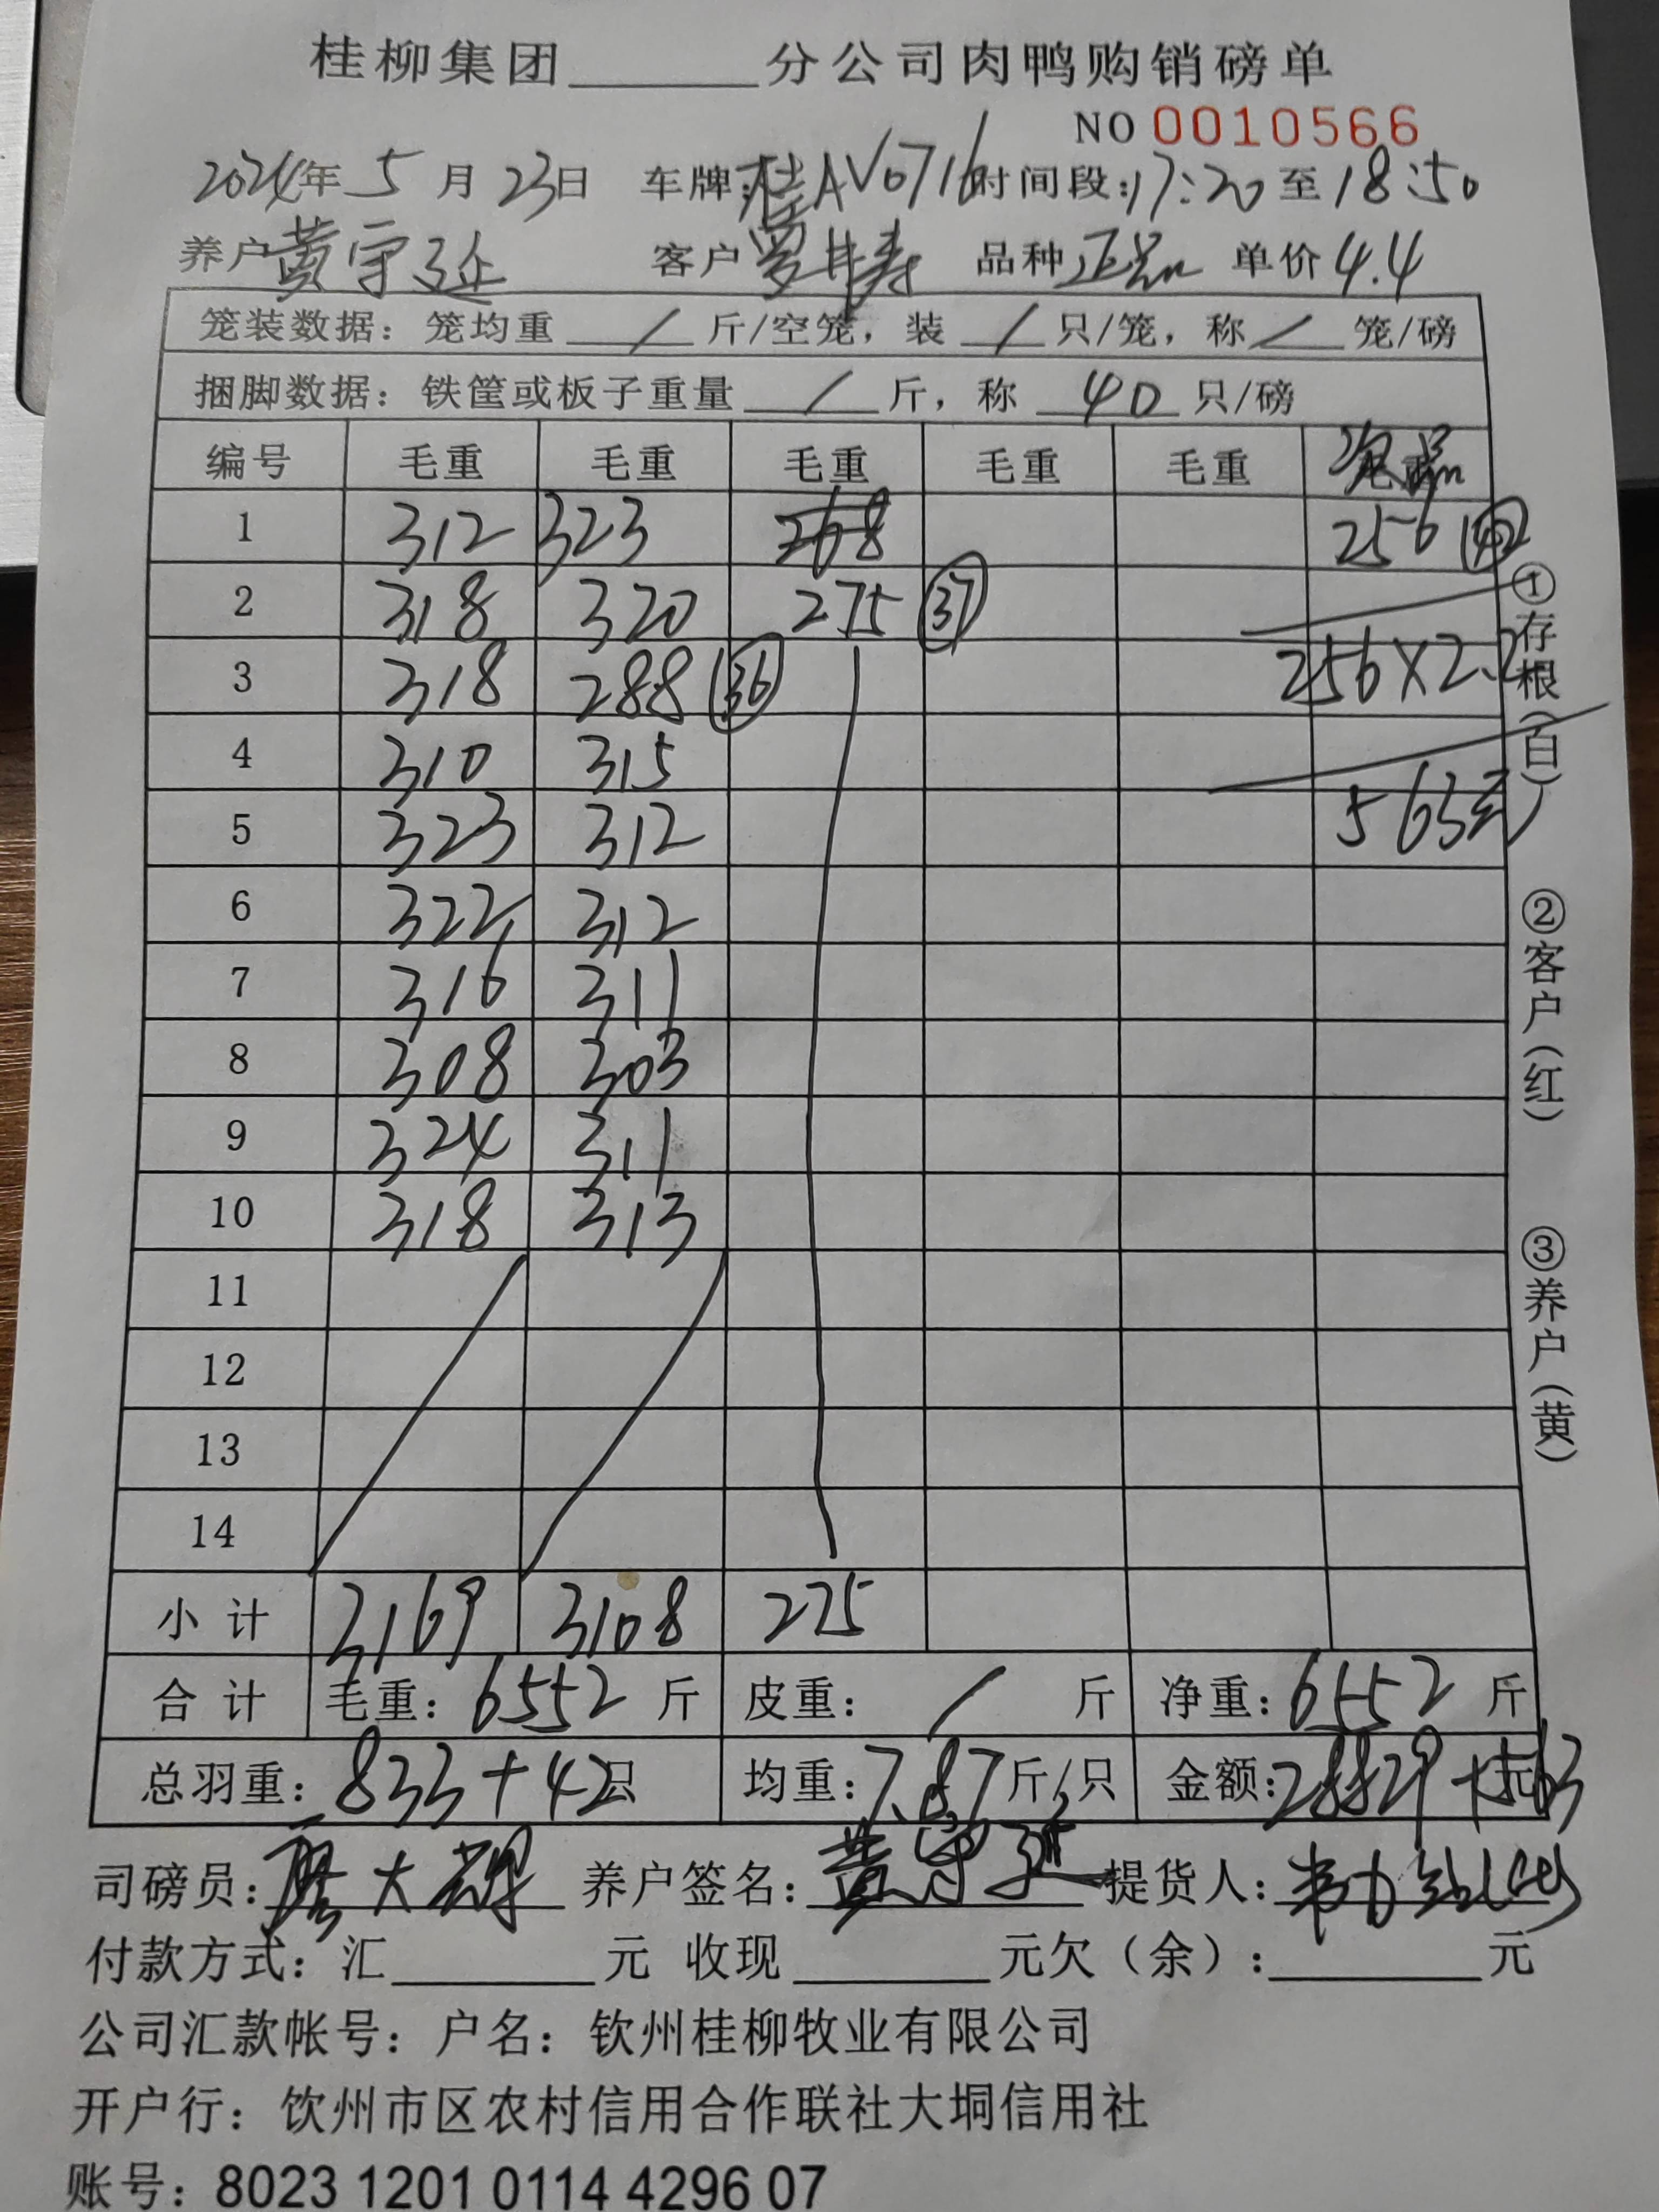 桂柳集团______分公司肉鸭购销磅单
NO 0010566
2024年 5 月 23日 车牌:桂AV0716 时间段:17:20 至 18:50
养户 黄宇延 客户 品种 正品 单价 4.4
笼装数据：笼均重 / 斤/空笼，装 / 只/笼，称 / 笼/磅
捆脚数据：铁筐或板子重量 / 斤，称 40 只/磅
编号 毛重 毛重 毛重 毛重 毛重 次品
1 312 323 268 256 (42)
2 318 320 275 (37)
3 318 288 (36) 256×2.2
4 310 315
5 323 312 563元
6 322 312
7 316 311
8 308 303
9 324 311
10 318 313
11
12
13
14
小 计 3169 3108 275
合 计 毛重：6552 斤 皮重： / 斤 净重：6552 斤
总羽重：833+42只 均重：7.87斤/只 金额：28829+563元
司磅员： 大 养户签名：黄宇延 提货人：
付款方式：汇______元 收现______元欠（余）:______元
公司汇款帐号：户名：钦州桂柳牧业有限公司
开户行：饮州市区农村信用合作联社大垌信用社
账号：8023 1201 0114 4296 07
①存根（白） ②客户（红） ③养户（黄）